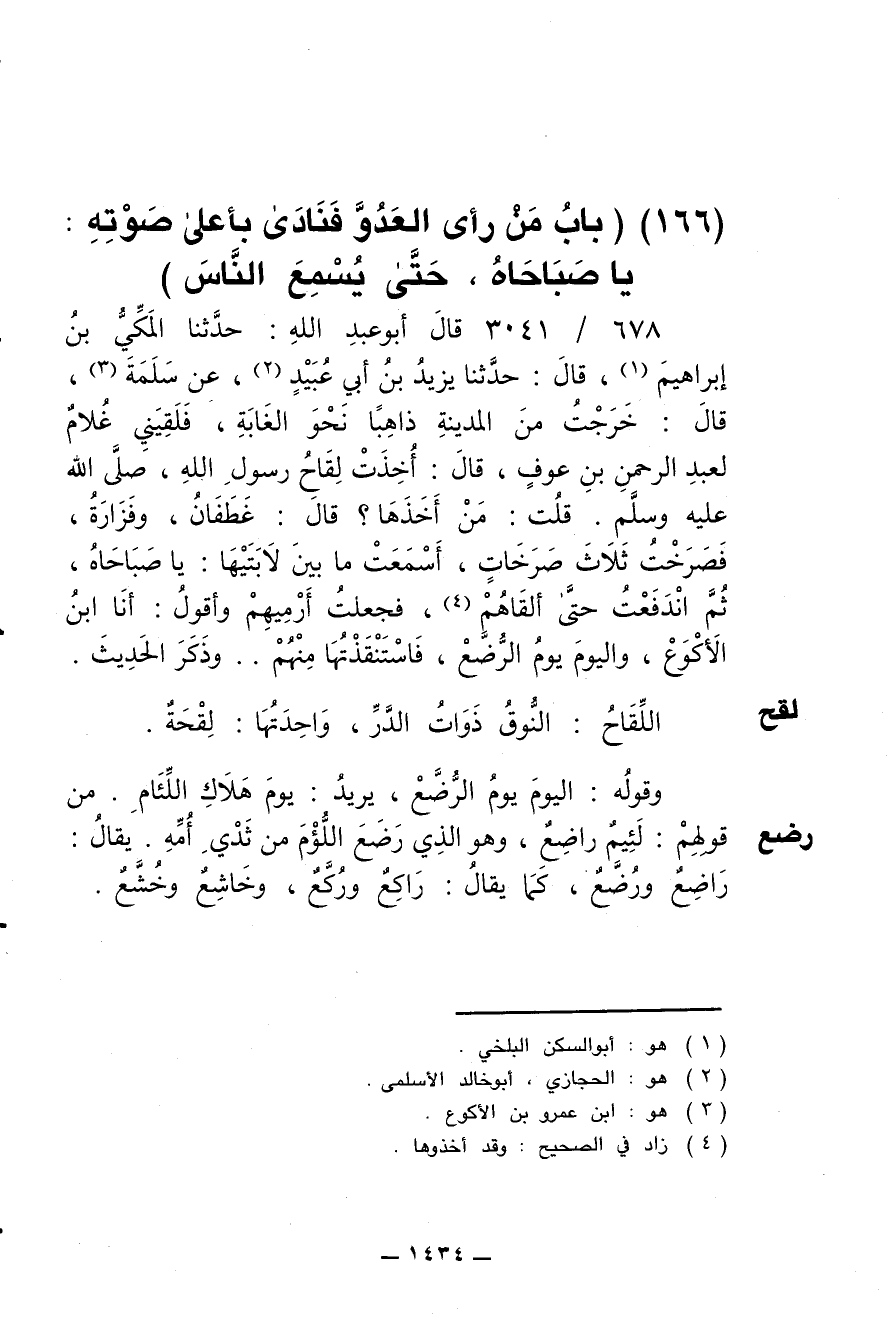 (١٦٦) ( بابُ مَنْ رأى العَدُوَّ فَنَادَىٰ بأعلىٰ صَوْتِهِ :
يا صَبَاحَاهُ ، حَتَّىٰ يُسْمِعَ النَّاسَ )
٦٧٨ / ٣٠٤١ قالَ أبوعبدِ اللهِ : حدَّثنا المَكِّيُّ بنُ
إبراهيمَ (١) ، قالَ : حدَّثنا يزيدُ بنُ أبي عُبَيْدٍ (٢) ، عن سَلَمَةَ (٣) ،
قالَ : خَرَجْتُ منَ المدينةِ ذاهِبًا نَحْوَ الغَابَةِ ، فَلَقِيَنِي غُلامٌ
لعبدِ الرحمنِ بنِ عوفٍ ، قالَ : أُخِذَتْ لِقَاحُ رسولِ اللهِ ، صلَّى الله
عليه وسلَّم . قلُت : مَنْ أَخَذَهَا ؟ قالَ : غَطَفَانُ ، وفَزَارَةُ ،
فَصَرَخْتُ ثَلَاثَ صَرَخَاتٍ ، أَسْمَعَتْ ما بينَ لَابَتَيْهَا : يا صَبَاحَاهُ ،
ثُمَّ انْدَفَعْتُ حتَّىٰ ألقَاهُمْ (٤) ، فجعلتُ أَرْمِيهِمْ وأقولُ : أنَا ابنُ
الَأكْوَعْ ، واليومَ يومُ الرُّضَّعْ ، فَاسْتَنْقَذْتُهَا مِنْهُمْ . . وذَكَرَ الحَدِيثَ .
لقح اللِّقَاحُ : النُّوقُ ذَوَاتُ الدَّرِّ ، وَاحِدَتُهَا : لِقْحَةٌ .
وقولُه : اليومَ يومُ الرُّضَّعْ ، يريدُ : يومَ هَلَاكِ اللِّئَامِ . من
رضع قولِهِمْ : لَئِيمٌ راضِعٌ ، وهو الذِي رَضَعَ اللُّؤْمَ من ثَدْيِ أُمِّهِ . يقالُ :
رَاضِعٌ ورُضَّعٌ ، كَمَا يقالُ : رَاكِعٌ ورُكَّعٌ ، وخَاشِعٌ وخُشَّعٌ .
(١) هو : أبوالسكن البلخي .
(٢) هو : الحجازي ، أبوخالد الأسلمى .
(٣) هو : ابن عمرو بن الأكوع .
(٤) زاد في الصحيح : وقد أخذوها .
— ١٤٣٤ —